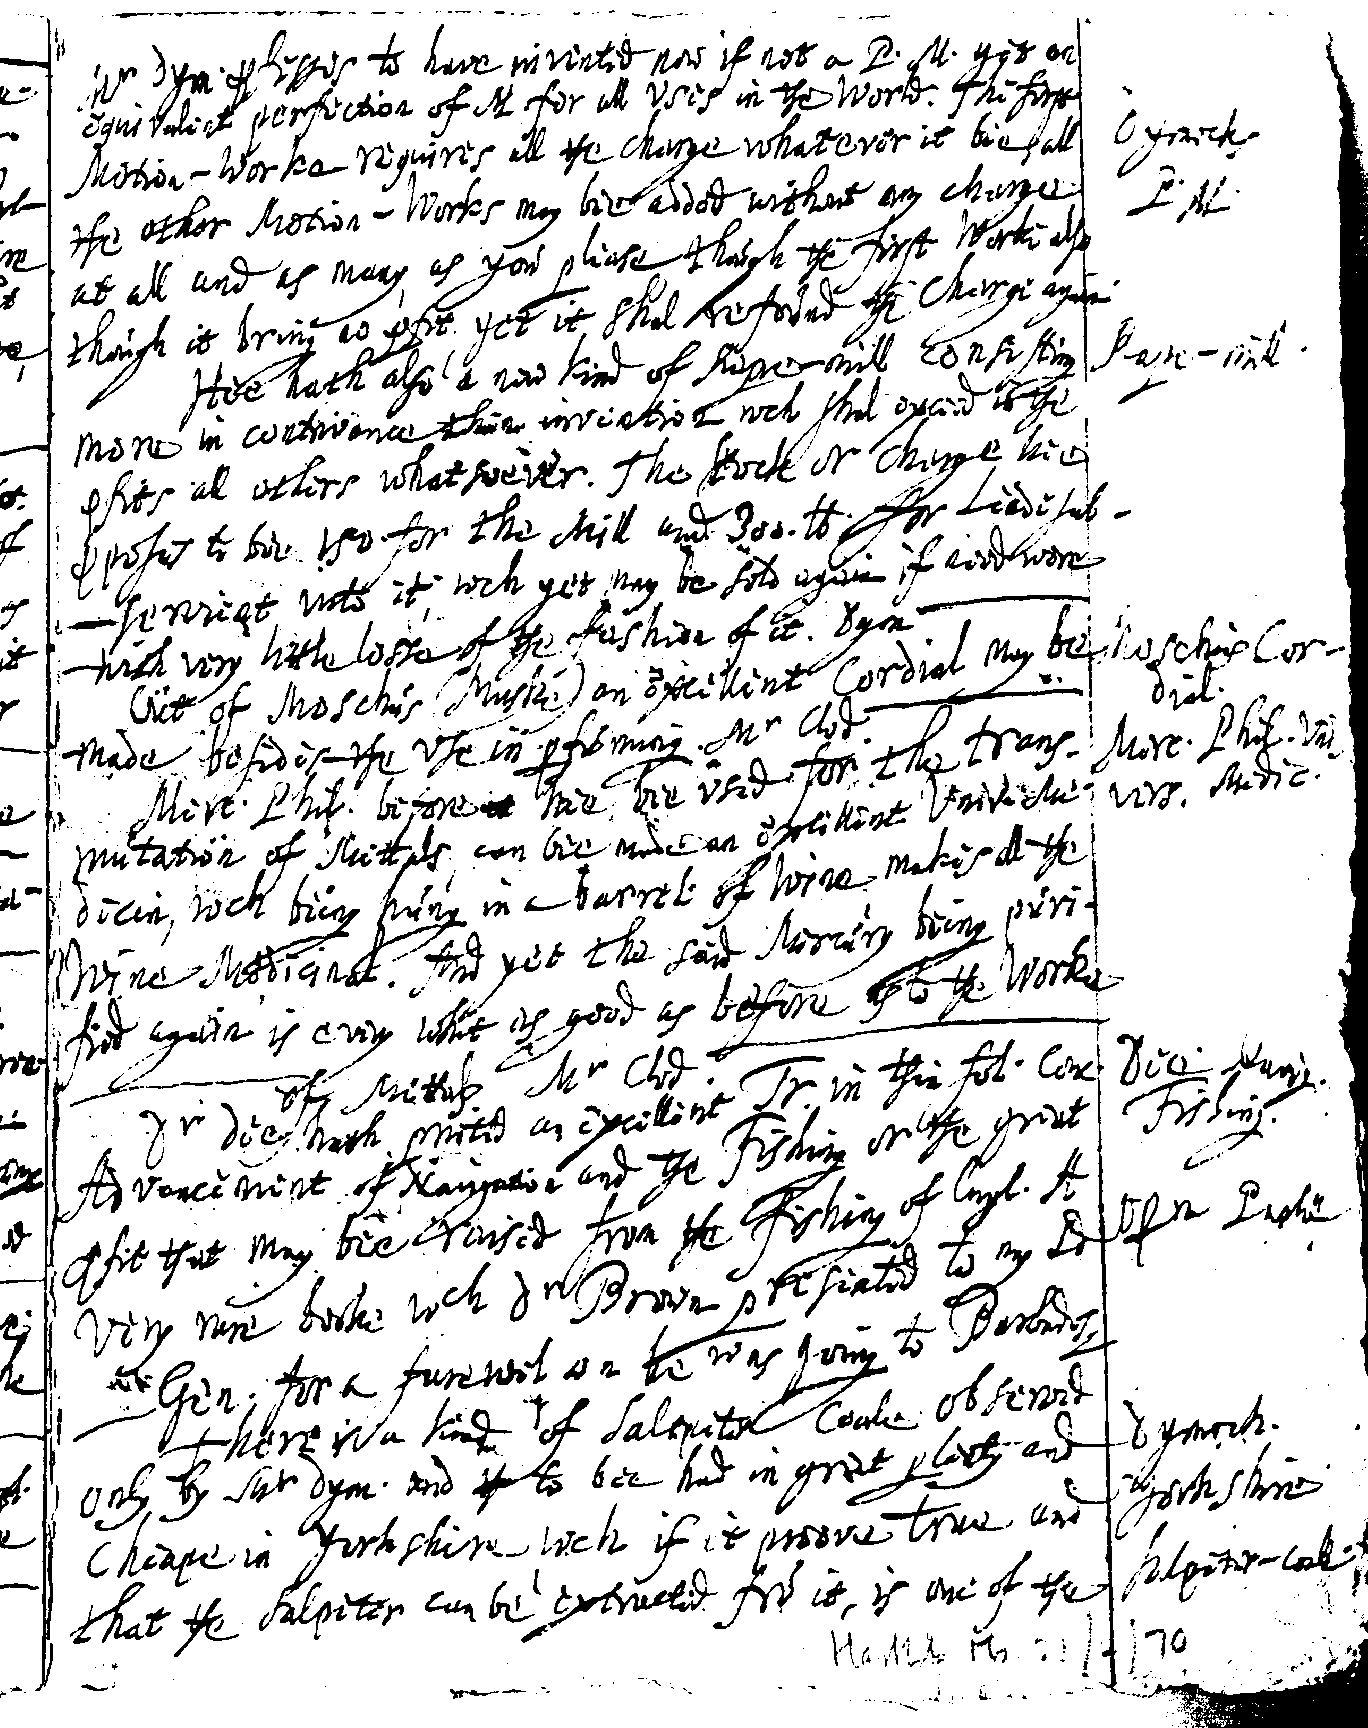 Mr Dym. pfesses to have invented now if not a P. M. yet an
equivalent perfection of M for all Uses in the World. The first
Motion-Worke requires all the charge whatever it bee, all
the other Motion-Works may bee added without any charge
at all and as many as you please though the first Worke also
though it bring no pfit yet it shal refound the Charge again
Hee hath also a new kind of Rape-mill consisting
more in contrivance then invention wch shal exceed in the
pfits all others whatsoever. The Stock or charge hee
pposes to bee 150 for the Mill and 300. lb. for Leade sub-
servient unto it, wch yet may be sold again if need were
with very little losse of the fashion of it. Dym
Out of Moschus (Muske) an excellent Cordial may be
made besides the Use in pfuming. Mr Clod.
Merc. Phil. before hee bee used for the trans-
mutation of Mettals, can bee made an excellent Univ. Me-
dicin, wch being hung in a barrel of Wine makes all the
Wine Medicinal. And yet the said Mercury being puri-
fied again is every whit as good as before as to the Worke
of Mettals Mr Clod.
Dr Dee hath printed an excellent Tr. in thin fol. Conc.
Advancement of Navigation and the Fishing or the great
pfit that may bee raised from the Fishing of Engl. A
very rare booke wch Dr Brown presented to my Ld
Gen. for a farewel wn he was going to Barbados,
There is a kind of Salepiter Coale observed
only by Mr Dym. and to bee had in great plenty and
Cheape in Yorkshire, wch if it proove true and
that the Salpiter can be extracted fro it, is one of the
Dymock.
P. M.
Rape-mill.
Moschus Cor-
dial.
Merc. Phil. Uni
vers. Medic.
Dee Navig.
Fishing.
Dymock.
Yorkshire
Salpiter-coale